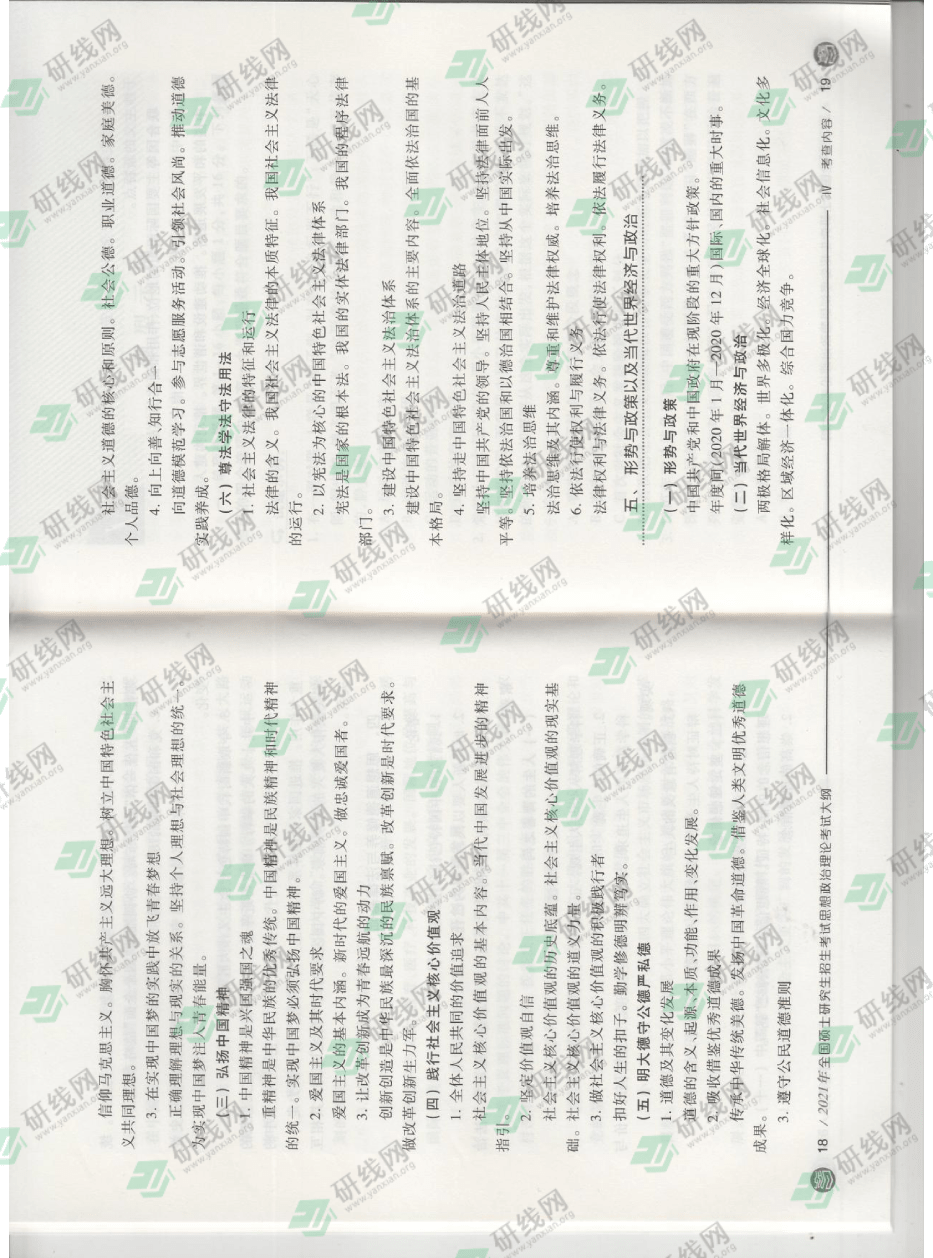 信仰马克思主义。胸怀共产主义远大理想。树立中国特色社会主
义共同理想。
3. 在实现中国梦的实践中放飞青春梦想
正确理解理想与现实的关系。坚持个人理想与社会理想的统一。
为实现中国梦注入青春能量。
(三) 弘扬中国精神
1. 中国精神是兴国强国之魂
重精神是中华民族的优秀传统。中国精神是民族精神和时代精神
的统一。实现中国梦必须弘扬中国精神。
2. 爱国主义及其时代要求
爱国主义的基本内涵。新时代的爱国主义。做忠诚爱国者。
3. 让改革创新成为青春远航的动力
创新创造是中华民族最深沉的民族禀赋。改革创新是时代要求。
做改革创新生力军。
(四) 践行社会主义核心价值观
1. 全体人民共同的价值追求
社会主义核心价值观的基本内容。当代中国发展进步的精神
指引。
2. 坚定价值观自信
社会主义核心价值观的历史底蕴。社会主义核心价值观的现实基
础。社会主义核心价值观的道义力量。
3. 做社会主义核心价值观的积极践行者
扣好人生的扣子。勤学修德明辨笃实。
(五) 明大德守公德严私德
1. 道德及其变化发展
道德的含义、起源、本质、功能、作用、变化发展。
2. 吸收借鉴优秀道德成果
传承中华传统美德。发扬中国革命道德。借鉴人类文明优秀道德
成果。
3. 遵守公民道德准则
18 / 2021年全国硕士研究生招生考试思想政治理论考试大纲
社会主义道德的核心和原则。社会公德。职业道德。家庭美德。
个人品德。
4. 向上向善、知行合一
向道德模范学习。参与志愿服务活动。引领社会风尚。推动道德
实践养成。
(六) 尊法学法守法用法
1. 社会主义法律的特征和运行
法律的含义。我国社会主义法律的本质特征。我国社会主义法律
的运行。
2. 以宪法为核心的中国特色社会主义法律体系
宪法是国家的根本法。我国的实体法律部门。我国的程序法律
部门。
3. 建设中国特色社会主义法治体系
建设中国特色社会主义法治体系的主要内容。全面依法治国的基
本格局。
4. 坚持走中国特色社会主义法治道路
坚持中国共产党的领导。坚持人民主体地位。坚持法律面前人人
平等。坚持依法治国和以德治国相结合。坚持从中国实际出发。
5. 培养法治思维
法治思维及其内涵。尊重和维护法律权威。培养法治思维。
6. 依法行使权利与履行义务
法律权利与法律义务。依法行使法律权利。依法履行法律义务。
五、形势与政策以及当代世界经济与政治
(一) 形势与政策
中国共产党和中国政府在现阶段的重大方针政策。
年度间(2020 年 1 月—2020 年 12 月)国际、国内的重大时事。
(二) 当代世界经济与政治
两极格局解体。世界多极化。经济全球化。社会信息化。文化多
样化。区域经济一体化。综合国力竞争。
Ⅳ 考查内容 / 19
研线网
www.yanxian.org